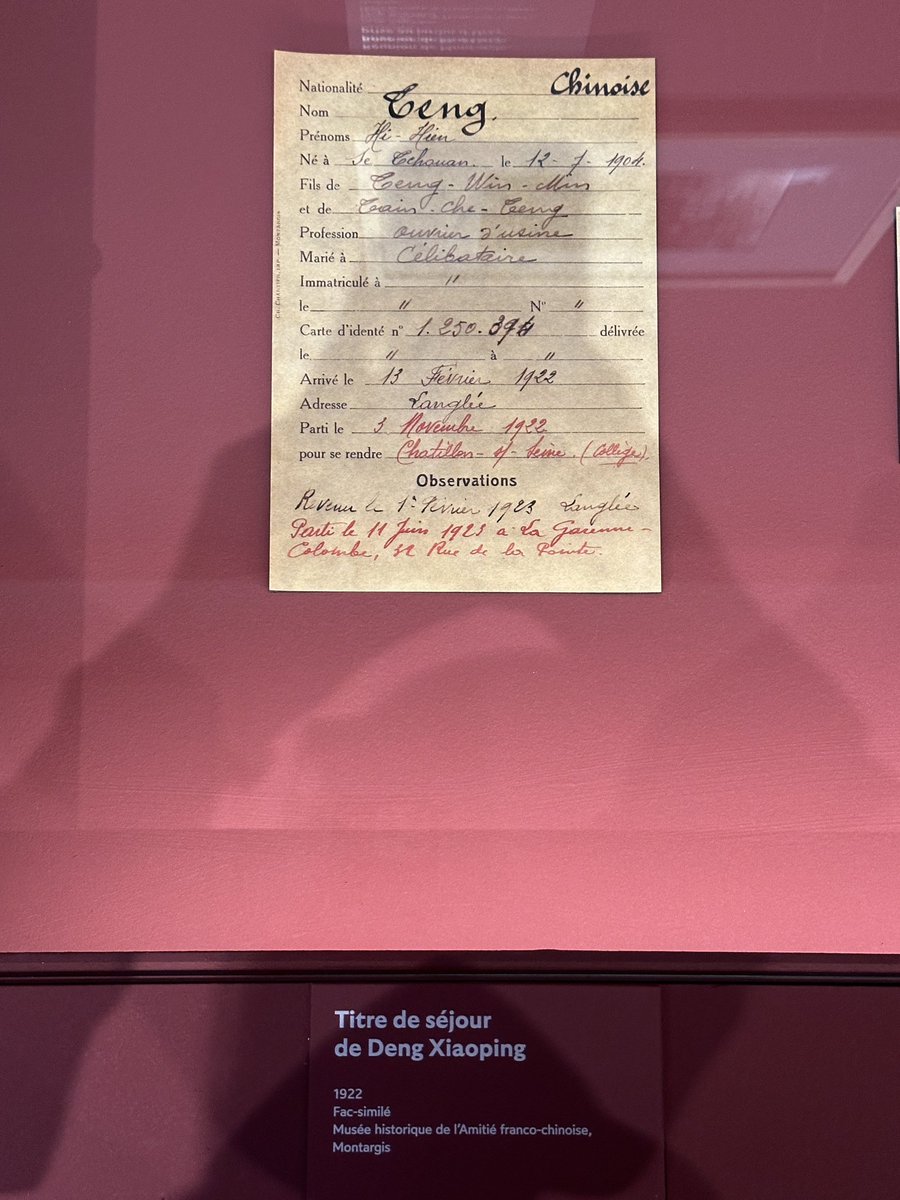 Nationalité Chinoise
Nom Teng.
Prénoms Hi-Hien
Né à Se Tchouan. le 12-7-1904.
Fils de Teng-Win-Min
et de Tain-che-Teng
Profession ouvrier d'usine
Marié à Célibataire
Immatriculé à "
le " N° "
Carte d'identé n° 1.250.394 délivrée
le " à "
Arrivé le 13 Février 1922
Adresse Langlée
Parti le 3 Novembre 1922
pour se rendre Chatillon-s/-Seine. (Collège).
Observations
Revenu le 1er Février 1923 Langlée
Parti le 11 Juin 1923 a La Garenne-
Colombe, 32 Rue de la Pointe.
Titre de séjour
de Deng Xiaoping
1922
Fac-similé
Musée historique de l'Amitié franco-chinoise,
Montargis